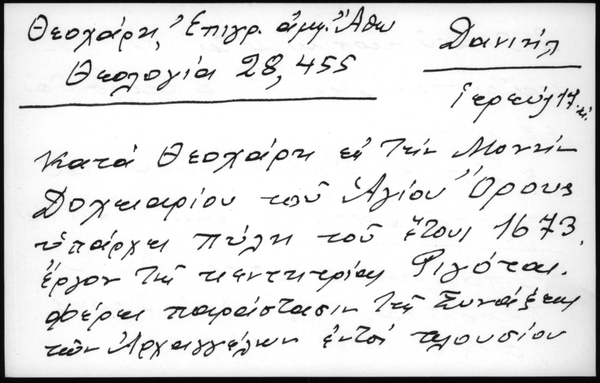 Θεοχάρη, Ἐπιγρ. ἀμφ. Ἄθω
Θεολογία 28, 455
Δανιήλ
Ἱερεύς 17
Κατά Θεοχάρη εἰς τήν Μονήν
Δοχειαρίου τοῦ Ἁγίου Ὄρους
ὑπάρχει πύλη τοῦ ἔτους 1673,
ἔργον τῆς κεντητρίας
φέρει παράστασιν τῆς Συνάξεως
τῶν Ἀρχαγγέλων ἐντός πλουσίου